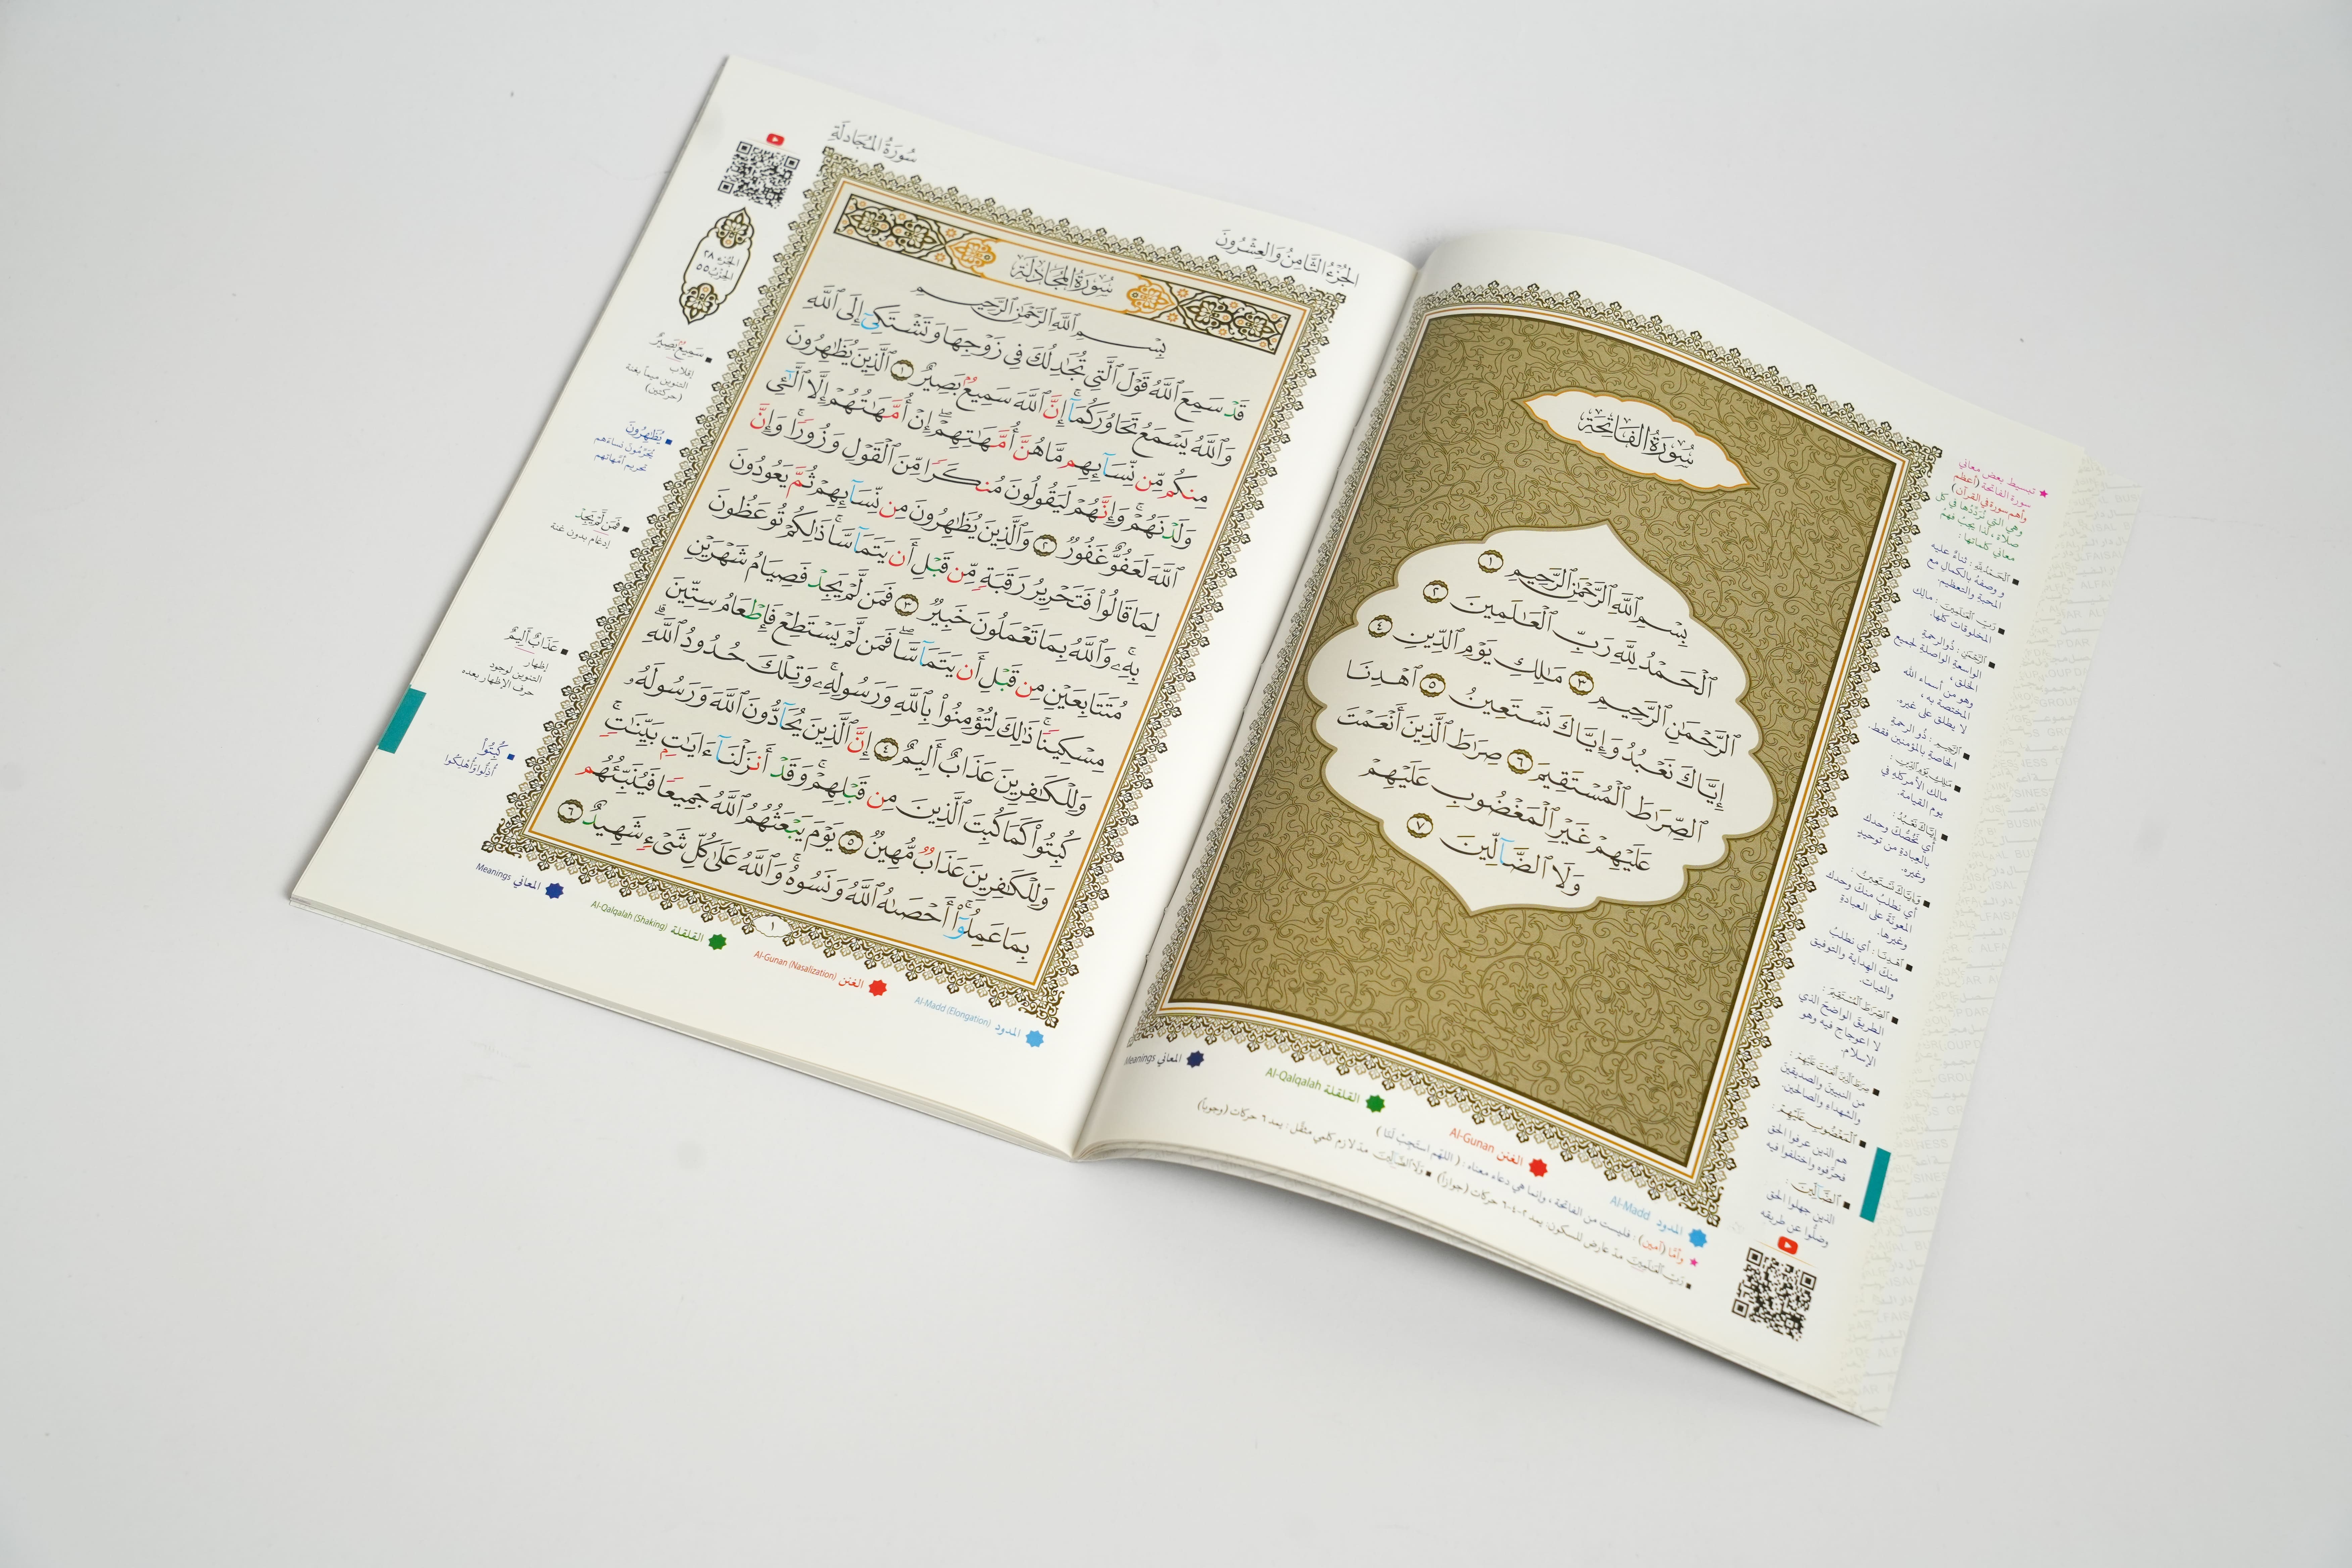 سُورَةُ الفَاتِحَةِ
بِسْمِ ٱللَّهِ ٱلرَّحْمَٰنِ ٱلرَّحِيمِ ١
ٱلْحَمْدُ لِلَّهِ رَبِّ ٱلْعَٰلَمِينَ ٢
ٱلرَّحْمَٰنِ ٱلرَّحِيمِ ٣ مَٰلِكِ يَوْمِ ٱلدِّينِ ٤
إِيَّاكَ نَعْبُدُ وَإِيَّاكَ نَسْتَعِينُ ٥ ٱهْدِنَا
ٱلصِّرَٰطَ ٱلْمُسْتَقِيمَ ٦ صِرَٰطَ ٱلَّذِينَ أَنْعَمْتَ
عَلَيْهِمْ غَيْرِ ٱلْمَغْضُوبِ عَلَيْهِمْ
وَلَا ٱلضَّآلِّينَ ٧
تبسيط بعض معاني
سورة الفاتحة (أعظم
وأهم سورة في القرآن)
وهي التي نُرَدِّدُها في كل
صلاة، لذا يجبُ فهمُ
معاني كلماتها:
ٱلْحَمْدُ لِلَّهِ : ثناءٌ عليه
ووصفُهُ بالكمال مع
المحبة والتعظيم.
رَبِّ ٱلْعَٰلَمِينَ : مالك
المخلوقات كلها.
ٱلرَّحْمَٰنِ : ذُو الرحمةِ
الواسعةِ الواصلةِ لجميع
الخلق،
وهو من أسماء الله
المختصة به،
لا يطلق على غيره.
ٱلرَّحِيمِ : ذُو الرحمةِ
الخاصةِ بالمؤمنين فقط.
مَٰلِكِ يَوْمِ ٱلدِّينِ :
مالك الأمر كله في
يوم القيامة.
إِيَّاكَ نَعْبُدُ :
أي نَخُصُّكَ وحدك
بالعبادةِ من توحيدٍ
وغيره.
وَإِيَّاكَ نَسْتَعِينُ :
أي نطلبُ منكَ وحدك
المعونَةَ على العبادةِ
وغيرها.
ٱهْدِنَا : أي نطلبُ
منكَ الهداية والتوفيق
والثبات.
ٱلصِّرَٰطَ ٱلْمُسْتَقِيمَ :
الطريقَ الواضحَ الذي
لا اعوجاج فيه وهو
الإسلام.
صِرَٰطَ ٱلَّذِينَ أَنْعَمْتَ عَلَيْهِمْ :
من النبيين والصديقين
والشهداءِ والصالحين.
ٱلْمَغْضُوبِ عَلَيْهِمْ :
هم الذين عرفوا الحق
فحرَّفوه واختلفوا فيه
ٱلضَّآلِّينَ :
الذين جهلوا الحق
وضلُّوا عن طريقه
المدود Al-Madd
الغنن Al-Gunan
القلقلة Al-Qalqalah
المعاني Meanings
وأمَّا (آمين) : فليست من الفاتحة، وإنما هي دعاء معناه : ( اللهم استجبْ لَنَا )
رَبِّ ٱلْعَٰلَمِينَ مدّ عارض للسكون: يمد ٢-٤-٦ حركات (جوازاً) وَلَا ٱلضَّآلِّينَ مدّ لازم كلمي مثقَّل : يمد ٦ حركات (وجوباً)
الجُزْءُ الثَّامِنُ وَالعِشْرُونَ
سُورَةُ المُجَادلَةِ
سُورَةُ المُجَادلَةِ
بِسْمِ ٱللَّهِ ٱلرَّحْمَٰنِ ٱلرَّحِيمِ
قَدْ سَمِعَ ٱللَّهُ قَوْلَ ٱلَّتِي تُجَٰدِلُكَ فِي زَوْجِهَا وَتَشْتَكِيٓ إِلَى ٱللَّهِ
وَٱللَّهُ يَسْمَعُ تَحَاوُرَكُمَآ إِنَّ ٱللَّهَ سَمِيعٌۢ بَصِيرٌ ١ ٱلَّذِينَ يُظَٰهِرُونَ
مِنكُم مِّن نِّسَآئِهِم مَّا هُنَّ أُمَّهَٰتِهِمْ ۖ إِنْ أُمَّهَٰتُهُمْ إِلَّا ٱلَّٰٓـِٔي
وَلَدْنَهُمْ ۚ وَإِنَّهُمْ لَيَقُولُونَ مُنكَرًا مِّنَ ٱلْقَوْلِ وَزُورًا ۚ وَإِنَّ
ٱللَّهَ لَعَفُوٌّ غَفُورٌ ٢ وَٱلَّذِينَ يُظَٰهِرُونَ مِن نِّسَآئِهِمْ ثُمَّ يَعُودُونَ
لِمَا قَالُوا۟ فَتَحْرِيرُ رَقَبَةٍ مِّن قَبْلِ أَن يَتَمَآسَّا ۚ ذَٰلِكُمْ تُوعَظُونَ
بِهِۦ ۚ وَٱللَّهُ بِمَا تَعْمَلُونَ خَبِيرٌ ٣ فَمَن لَّمْ يَجِدْ فَصِيَامُ شَهْرَيْنِ
مُتَتَابِعَيْنِ مِن قَبْلِ أَن يَتَمَآسَّا ۖ فَمَن لَّمْ يَسْتَطِعْ فَإِطْعَامُ سِتِّينَ
مِسْكِينًا ۚ ذَٰلِكَ لِتُؤْمِنُوا۟ بِٱللَّهِ وَرَسُولِهِۦ ۚ وَتِلْكَ حُدُودُ ٱللَّهِ ۗ
وَلِلْكَٰفِرِينَ عَذَابٌ أَلِيمٌ ٤ إِنَّ ٱلَّذِينَ يُحَآدُّونَ ٱللَّهَ وَرَسُولَهُۥ
كُبِتُوا۟ كَمَا كُبِتَ ٱلَّذِينَ مِن قَبْلِهِمْ ۚ وَقَدْ أَنزَلْنَآ ءَايَٰتٍۭ بَيِّنَٰتٍ ۚ
وَلِلْكَٰفِرِينَ عَذَابٌ مُّهِينٌ ٥ يَوْمَ يَبْعَثُهُمُ ٱللَّهُ جَمِيعًا فَيُنَبِّئُهُم
بِمَا عَمِلُوٓا۟ ۚ أَحْصَىٰهُ ٱللَّهُ وَنَسُوهُ ۚ وَٱللَّهُ عَلَىٰ كُلِّ شَىْءٍ شَهِيدٌ ٦
١
الجُزْء ٢٨
الحِزْبُ ٥٥
سَمِيعٌۢ بَصِيرٌ
إقلاب
التنوين ميماً بغنة
(حركتين)
يُظَٰهِرُونَ
يُحَرِّمُونَ نساءَهم
تحريم أمَّهاتهم
فَمَن لَّمْ يَجِدْ
إدغام بدون غنة
عَذَابٌ أَلِيمٌ
إظهار
التنوين لوجود
حرف الإظهار بعده
كُبِتُوا۟
أُذِلُّوا وأُهْلِكُوا
المدود Al-Madd (Elongation)
الغنن Al-Gunan (Nasalization)
القلقلة Al-Qalqalah (Shaking)
المعاني Meanings